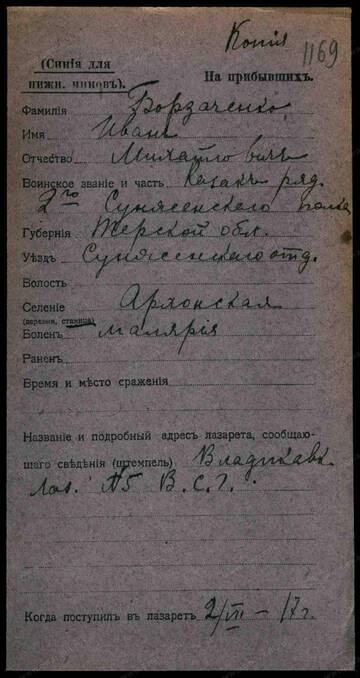 Копія
1169
(Синія для
нижн. чиновъ).
На прибывшихъ.
Фамилія Борзаченко
Имя Иванъ
Отчество Михайловичъ
Воинское званіе и часть Казакъ ряд.
2го Сунженскаго полка
Губернія Терской обл.
Уѣздъ Сунженскаго отд.
Волость
Селеніе Архонская
(деревня, станица)
Боленъ малярія
Раненъ
Время и мѣсто сраженія
Названіе и подробный адресъ лазарета, сообщаю-
щаго свѣдѣнія (штемпель) Владикавк.
Лаз. №5 В.С.Г.
Когда поступилъ въ лазаретъ 2/VII — 17 г.